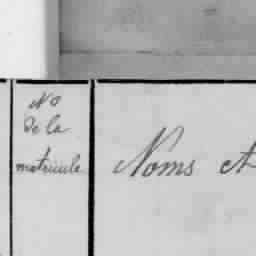 No
de la
matricule
Noms et